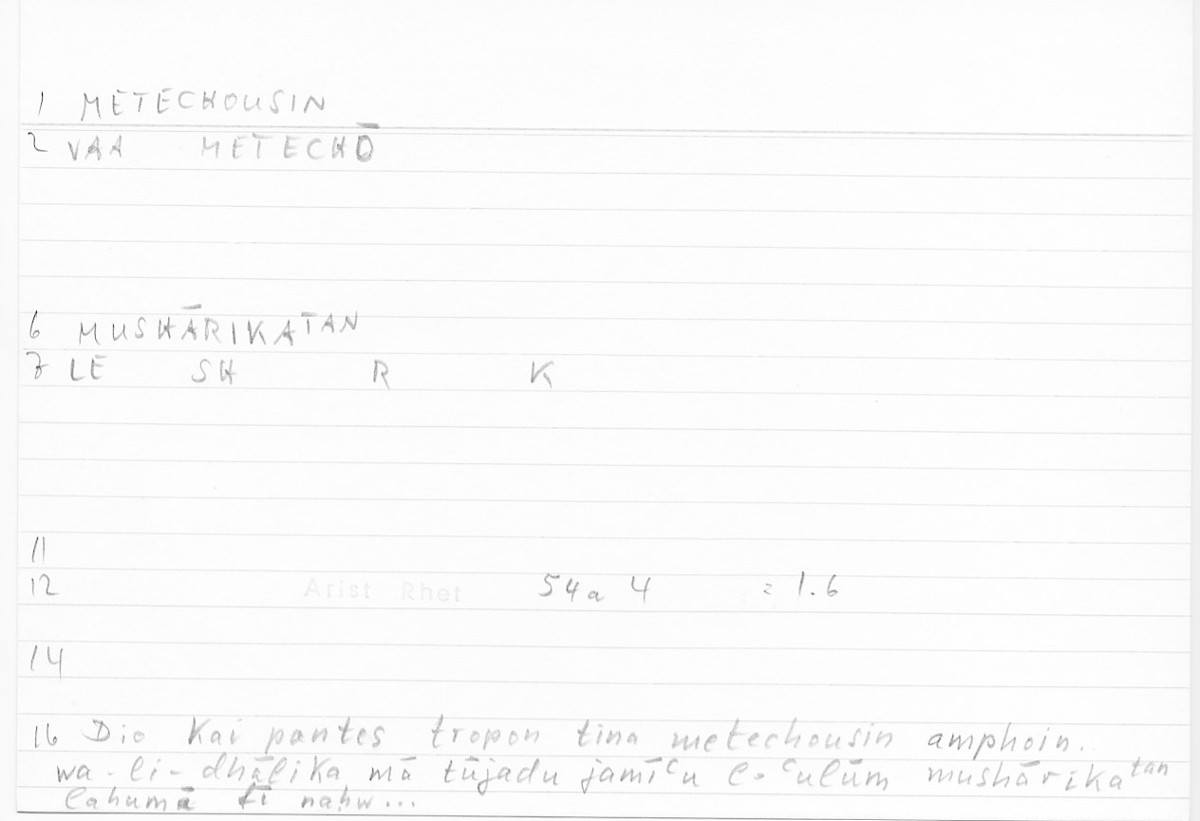 1 METECHOUSIN
2 VAA METECHŌ
6 MUSHĀRIKATAN
7 LE SH R K
11
12 Arist Rhet 54a 4 = 1.6
14
16 Dio kai pantes tropon tina metechousin amphoin.
wa-li-dhālika mā tūjadu jamīᶜu l-ᶜulūm mushārikatan
lahumā fī naḥw...